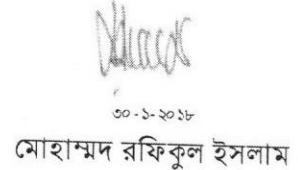 ৩০-১-২০১৮
মোহাম্মদ রফিকুল ইসলাম